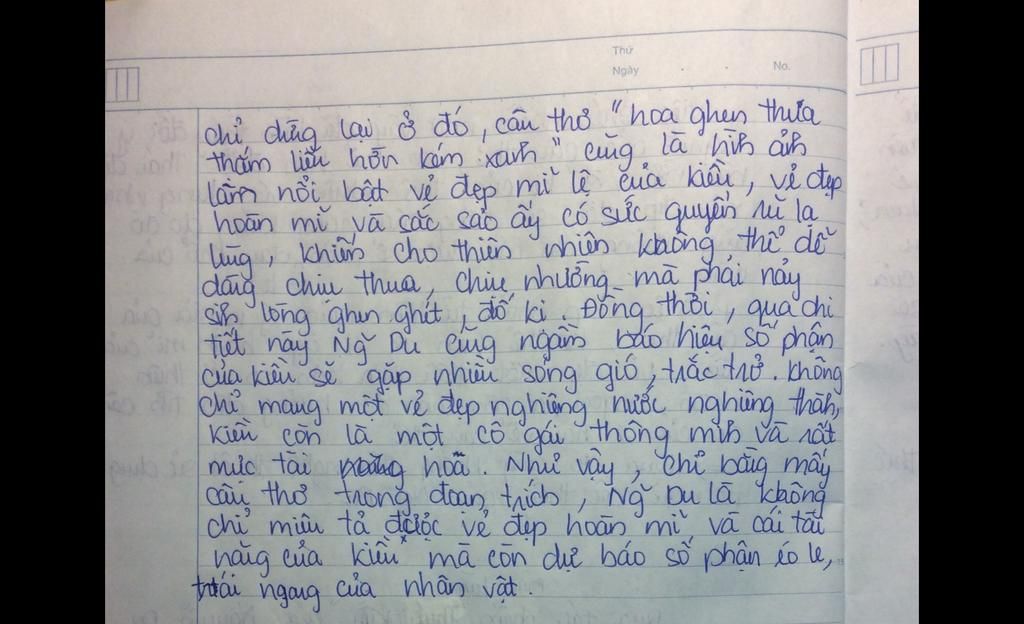 Thứ
Ngày . . No.
chỉ dừng lại ở đó, câu thơ "hoa ghen thua
thắm liễu hờn kém xanh" cũng là hình ảnh
làm nổi bật vẻ đẹp mĩ lệ của kiều, vẻ đẹp
hoàn mĩ và sắc sảo ấy có sức quyến rũ lạ
lùng, khiến cho thiên nhiên không thể dễ
dàng chịu thua, chịu nhường mà phải nảy
sinh lòng ghen ghít, đố kị. Đồng thời, qua chi
tiết này Ng~ Du cũng ngầm báo hiệu số phận
của kiều sẽ gặp nhiều sóng gió, trắc trở. không
chỉ mang một vẻ đẹp nghiêng nước nghiêng thành,
kiều còn là một cô gái thông minh và rất
mực tài hoa. Như vậy, chỉ bằng mấy
câu thơ trong đoạn trích, Ng~ Du là không
chỉ miêu tả được vẻ đẹp hoàn mĩ và cái tài
năng của kiều mà còn dự báo số phận éo le,
trái ngang của nhân vật.